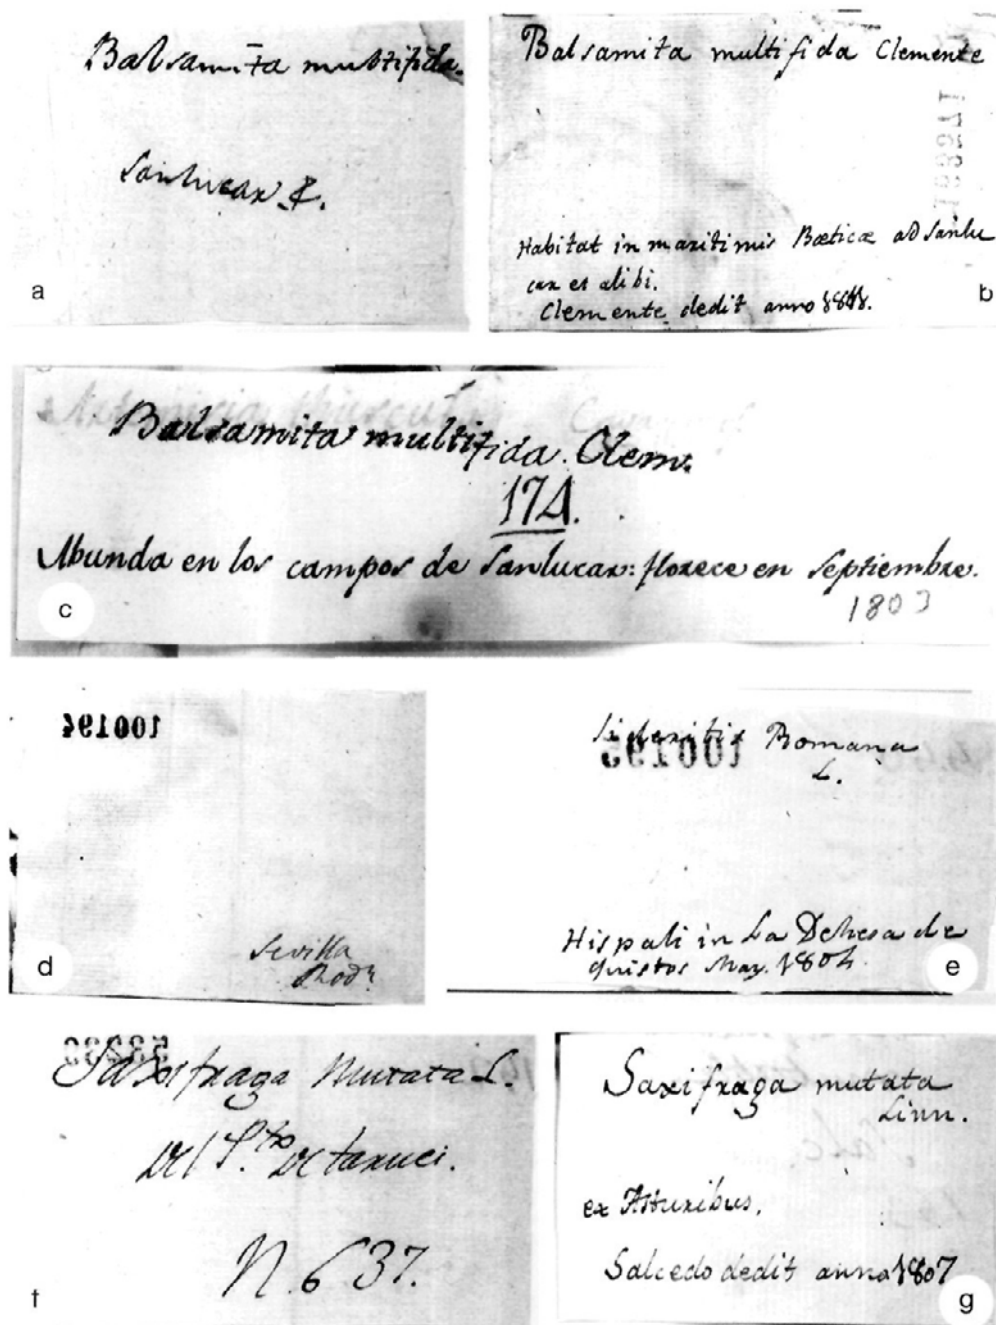 Balsamita multifida.
Sanlucar &.
a
Balsamita multifida Clemente
183371
Habitat in maritimis Bæticæ ad Sanlu
car et alibi.
Clemente dedit anno
b
Balsamita multifida. Clem.
174.
Abunda en los campos de Sanlucar: florece en Septiembre.
1803
c
100194
Sevilla
Rodr.
d
Sideritis Romana
100195
L.
Hispali in La Dehesa de
May. 1804.
e
53239
Saxifraga Mutata L.
Del P.to De taruci.
N. 637.
f
Saxifraga mutata
Linn.
ex Asturibus.
Salcedo dedit anno 1807
g